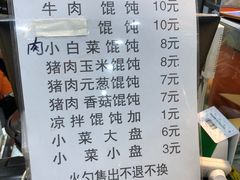 牛肉 馄饨 10元
馄饨 10元
肉小白菜馄饨 8元
猪肉玉米馄饨 8元
猪肉元葱馄饨 7元
猪肉香菇馄饨 7元
凉拌馄饨加 1元
小菜大盘 6元
小菜小盘 3元
火勺售出不退不换